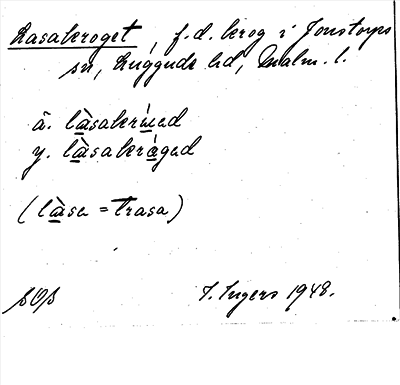 Lasakroget, f.d. krog i Jonstorps
sn, Luggude hd, Malm. l.
ä. làsakrúed
y. làsakráged
(làsa = trasa)
sOs I. Ingers 1948.